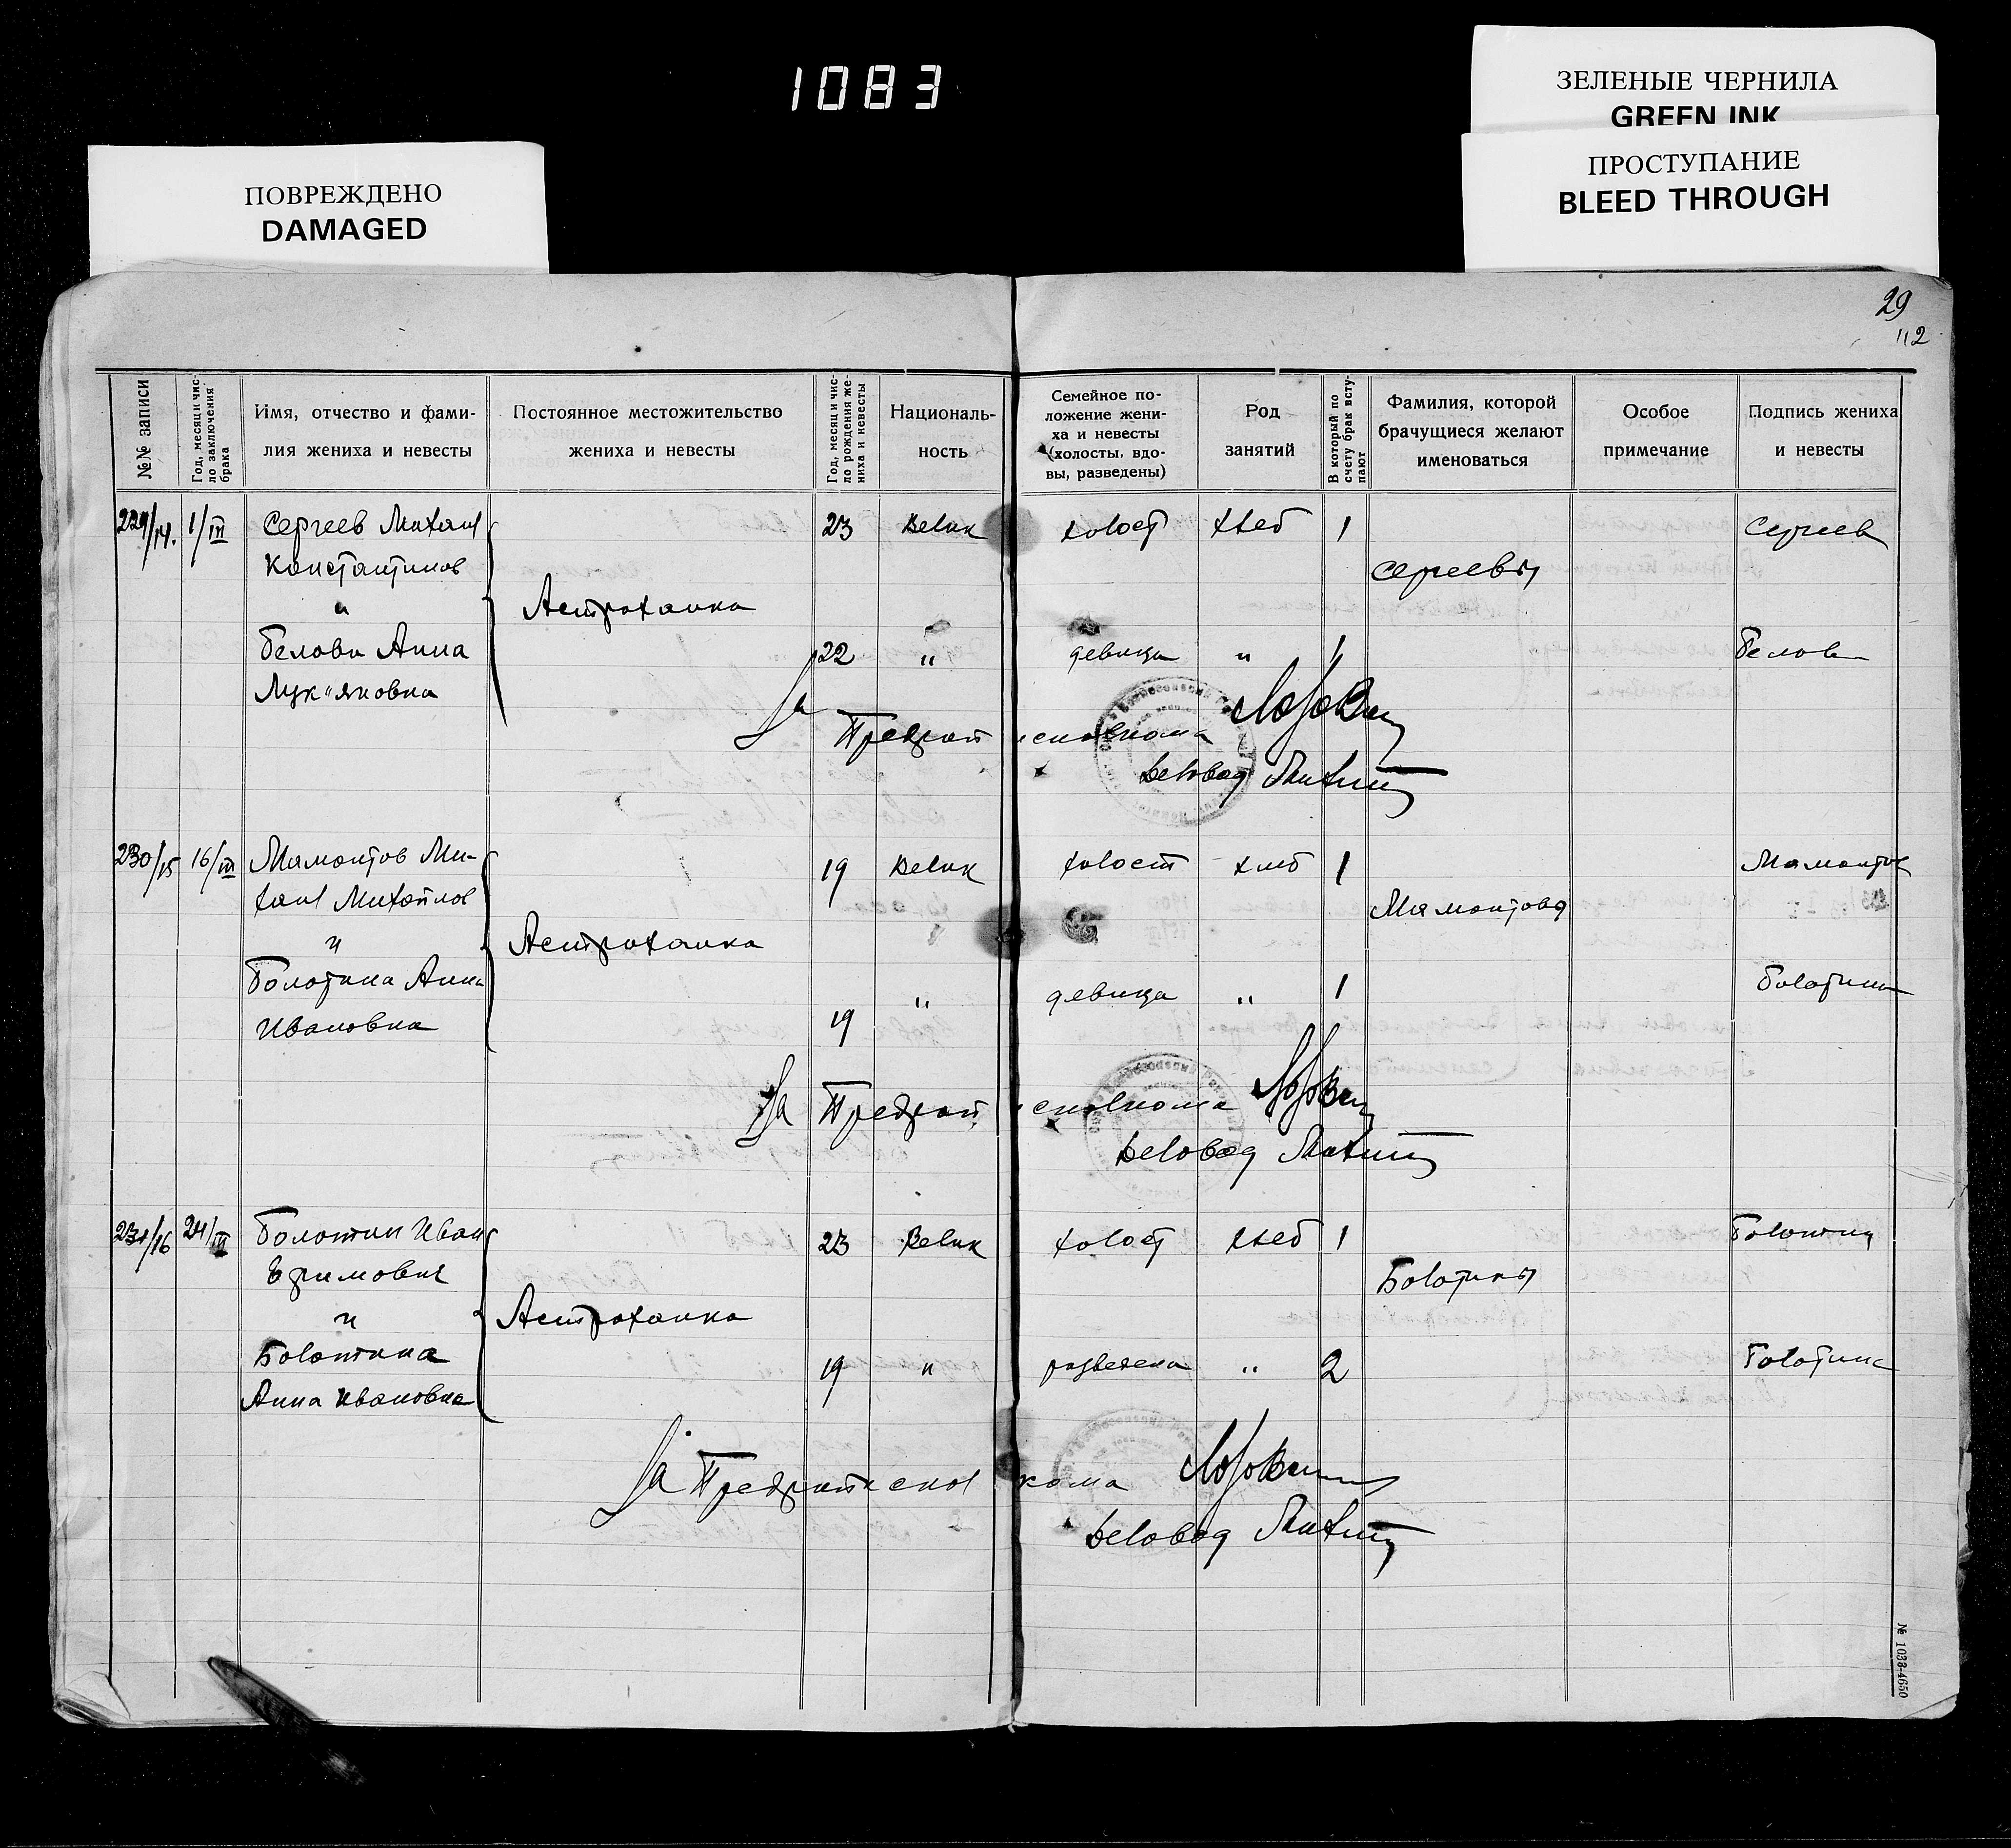 1083
ПОВРЕЖДЕНО
DAMAGED
ЗЕЛЕНЫЕ ЧЕРНИЛА
GREEN INK
ПРОСТУПАНИЕ
BLEED THROUGH
29
112
№№ записи
Год, месяц и чис-
ло заключения
брака
Имя, отчество и фами-
лия жениха и невесты
Постоянное местожительство
жениха и невесты
Год, месяц и чис-
ло рождения же-
ниха и невесты
Националь-
ность
Семейное по-
ложение жени-
ха и невесты
(холосты, вдо-
вы, разведены)
Род
занятий
В который по
счету брак всту-
пают
Фамилия, которой
брачущиеся желают
именоваться
Особое
примечание
Подпись жениха
и невесты
229/14. 1/III Сергеев Михаил 23 Велик холост хлеб 1 Сергеев
Константинов Сергеевы
и Астраханка
Белова Анна 22 " девица " 1 Белова
Лук"яновна
За Предрай исполкома
230/15 16/III Мамонтов Ми- 19 Велик холост хлеб 1 Мамонтов
хаил Михайлов Мамонтова
и Астраханка
Болотина Анна " девица " 1 Болотина
Ивановна 19
За Предрай исполкома
231/16 24/III Болотин Иван 23 Велик холост хлеб 1 Болотин
Ефимович Болотины
и Астраханка
Болотина 19 " разведена " 2 Болотина
Анна Ивановна
За Предрайисполкома
№ 1033-4650